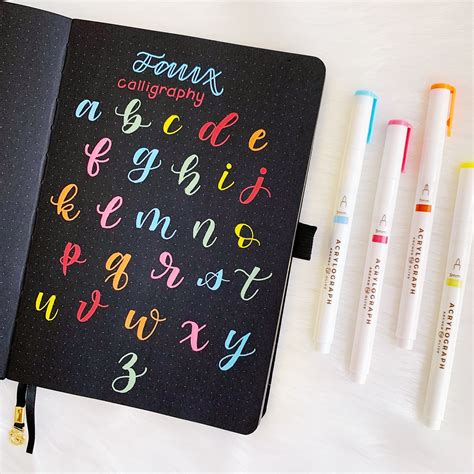 Faux
calligraphy
a b c d e
f g h i j
k l m n o
p q r s t
u v w x y
z
A
ACRYLOGRAPH
A
ACRYLOGRAPH
A
ACRYLOGRAPH
A
ACRYLOGRAPH